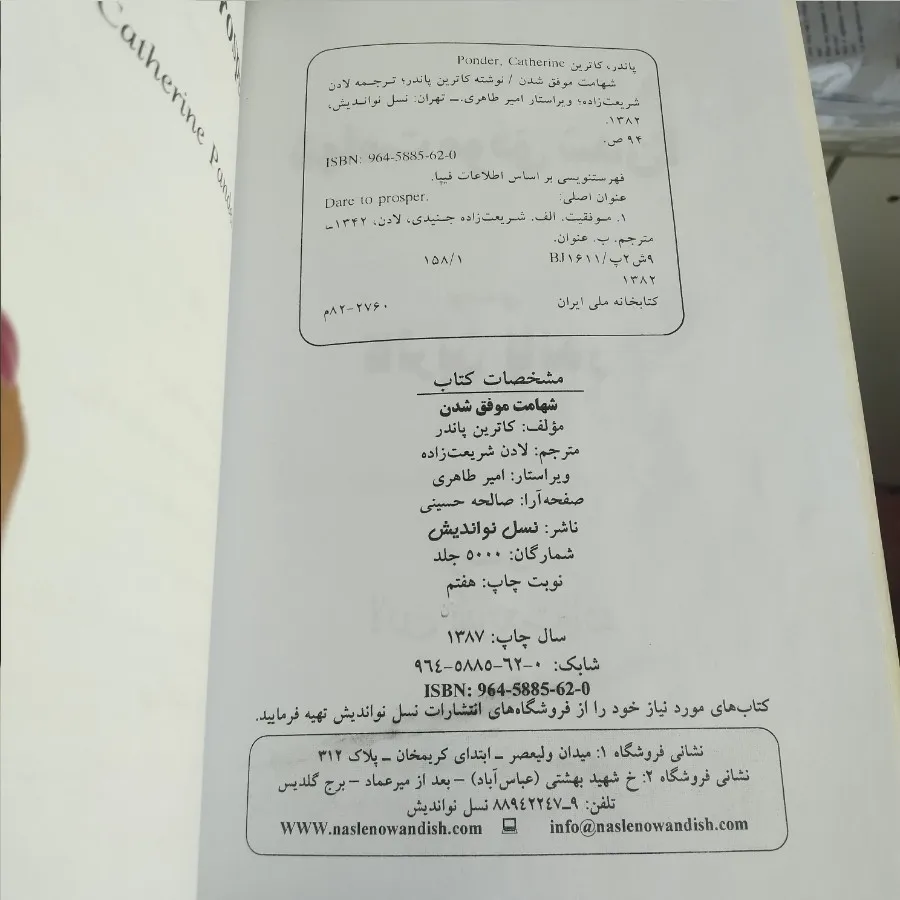 Catherine Ponder
پاندر، کاترین Ponder, Catherine
شهامت موفق شدن / نوشته کاترین پاندر؛ ترجمه لادن
شریعت‌زاده؛ ویراستار امیر طاهری.ـ تهران: نسل نواندیش،
۱۳۸۲.
۹۴ ص.
ISBN: 964-5885-62-0
فهرستنویسی بر اساس اطلاعات فیپا.
عنوان اصلی: Dare to prosper.
۱. موفقیت. الف. شریعت‌زاده جنیدی، لادن، ۱۳۴۲ ـ
مترجم. ب. عنوان.
۹ش۲پ/BJ۱۶۱۱ ۱۵۸/۱
۱۳۸۲
کتابخانه ملی ایران ۲۷۶۰-۸۲م
مشخصات کتاب
شهامت موفق شدن
مؤلف: کاترین پاندر
مترجم: لادن شریعت‌زاده
ویراستار: امیر طاهری
صفحه‌آرا: صالحه حسینی
ناشر: نسل نواندیش
شمارگان: ۵۰۰۰ جلد
نوبت چاپ: هفتم
سال چاپ: ۱۳۸۷
شابک: ۰-۶۲-۵۸۸۵-۹۶۴
ISBN: 964-5885-62-0
کتاب‌های مورد نیاز خود را از فروشگاه‌های انتشارات نسل نواندیش تهیه فرمایید.
نشانی فروشگاه ۱: میدان ولیعصر ـ ابتدای کریمخان ـ پلاک ۳۱۲
نشانی فروشگاه ۲: خ شهید بهشتی (عباس‌آباد) – بعد از میرعماد – برج گلدیس
تلفن: ۹ـ۸۸۹۴۲۲۴۷ نسل نواندیش
WWW.naslenowandish.com info@naslenowandish.com